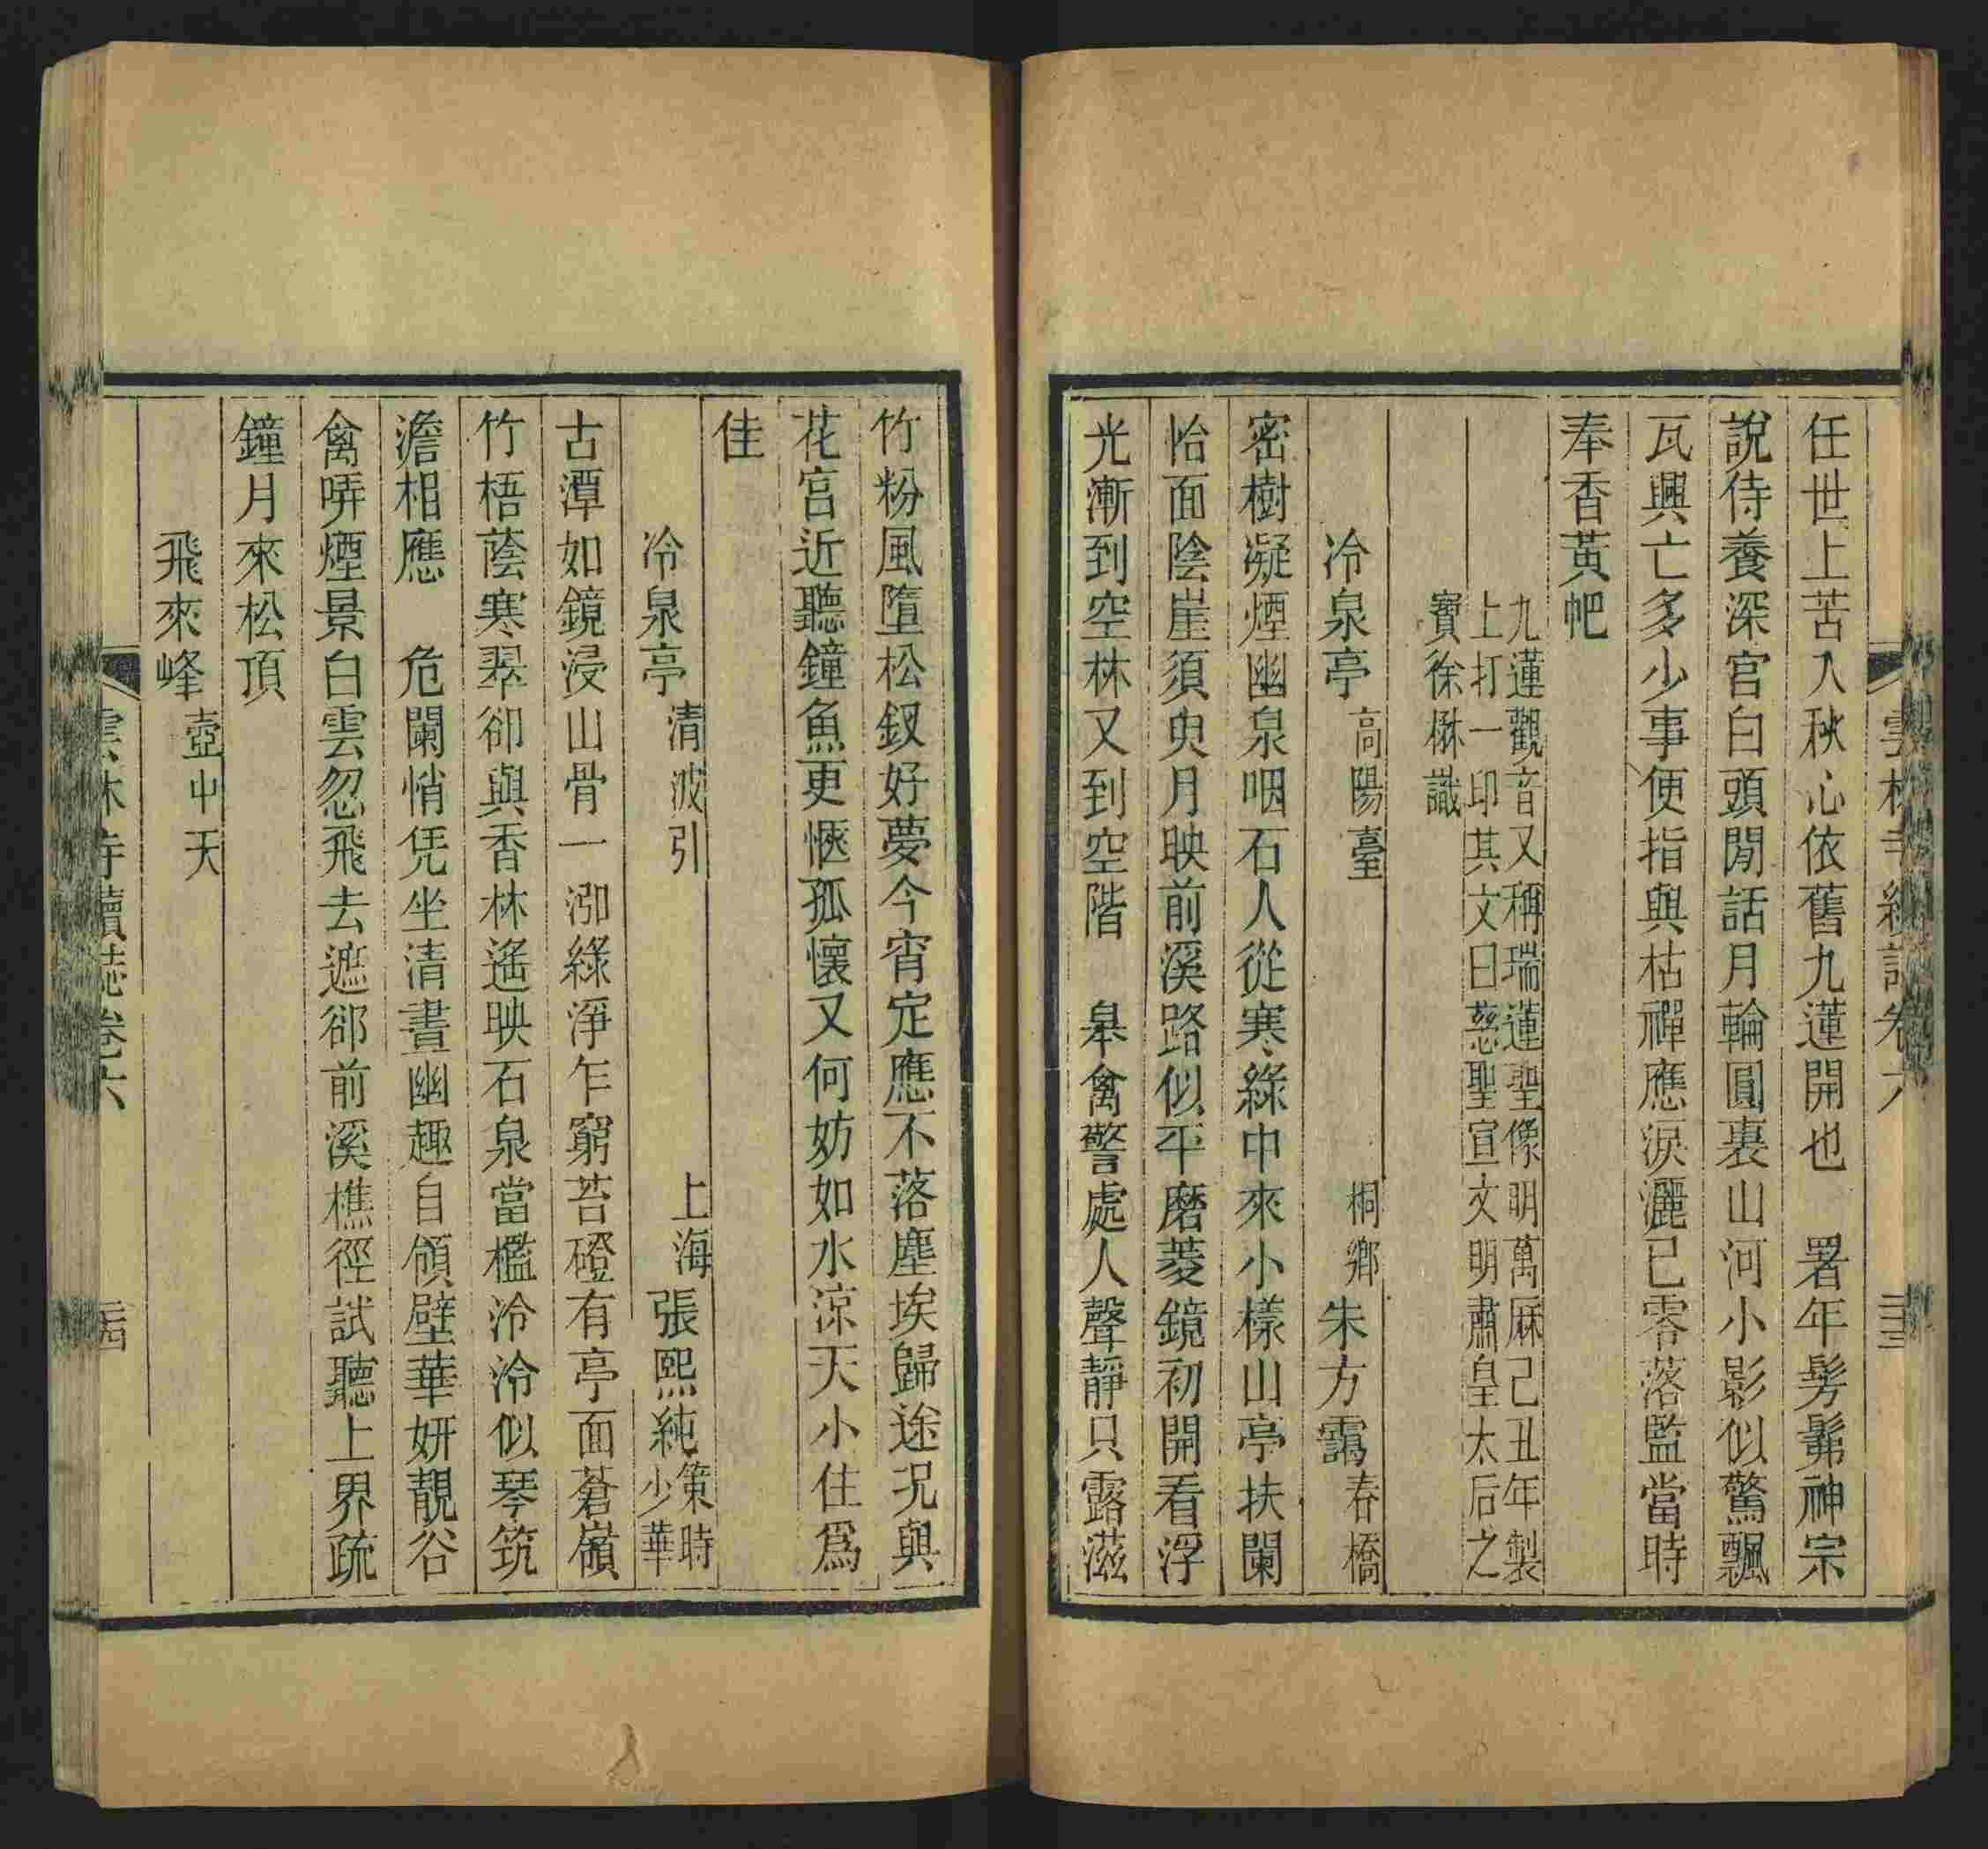 任世上苦人秋心依舊九蓮開也　署年髣髴神宗
說侍養深宮白頭閒話月輪圓裏山河小影似驚飄
瓦興亡多少事便指與枯禪應淚灑已零落監當時
奉香黃帊
九蓮觀音又稱瑞蓮聖像明萬厤己丑年製
上打一印其文曰慈聖宣文明肅皇太后之
寶徐楙識
冷泉亭高陽臺　桐鄉朱方靄春橋
密樹凝煙幽泉咽石人從寒綠中來小樣山亭扶闌
怡面陰崖須臾月映前溪路似平磨菱鏡初開看浮
光漸到空林又到空階　皋禽警處人聲靜只露滋
雲林寺續誌卷六
竹粉風墮松釵好夢今宵定應不落塵埃歸途況與
花宮近聽鐘魚更愜孤懷又何妨如水涼天小住爲
佳
冷泉亭清波引　上海張熙純策時少華
古潭如鏡浸山骨一泓綠淨乍窮苔磴有亭面蒼嶺
竹梧蔭寒翠卻與香林遙映石泉當檻泠泠似琴筑
澹相應　危闌悄凭坐清晝幽趣自領壁華妍靚谷
禽哢煙景白雲忽飛去遮郤前溪樵徑試聽上界疏
鐘月來松頂
飛來峰壺中天
雲林寺續誌卷六